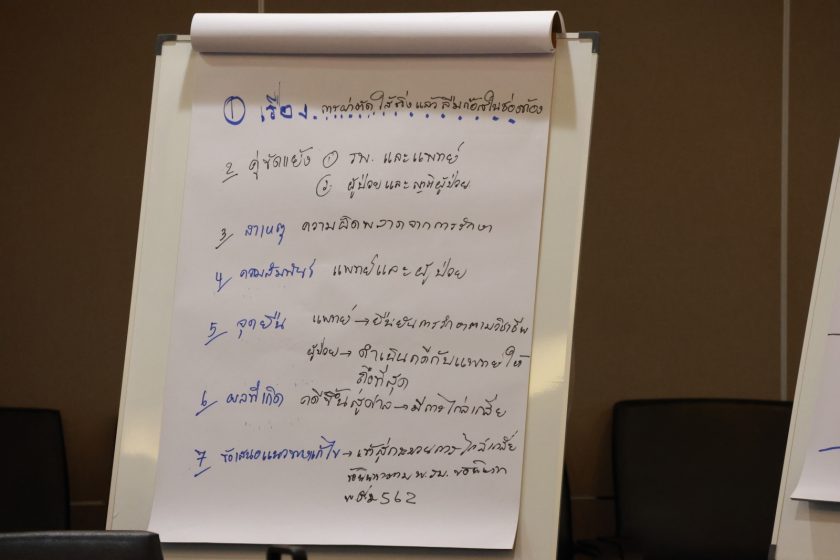 ① เรื่อง การผ่าตัดไส้ติ่งแล้วลืมก๊อสในช่องท้อง
2 คู่ขัดแย้ง ① รพ. และแพทย์
② ผู้ป่วยและญาติผู้ป่วย
3 สาเหตุ ความผิดพลาดจากการรักษา
4 ความสัมพันธ์ แพทย์และผู้ป่วย
5 จุดยืน แพทย์ → ยืนยันการรักษาตามวิชาชีพ
ผู้ป่วย → ดำเนินคดีกับแพทย์ให้
ถึงที่สุด
6 ผลที่เกิด คดีขึ้นสู่ศาล → มีการไกล่เกลี่ย
7 ข้อเสนอแนวทางแก้ไข → เข้าสู่กระบวนการไกล่เกลี่ย
ข้อพิพาทตาม พ.รบ. ข้อพิพาท
2562